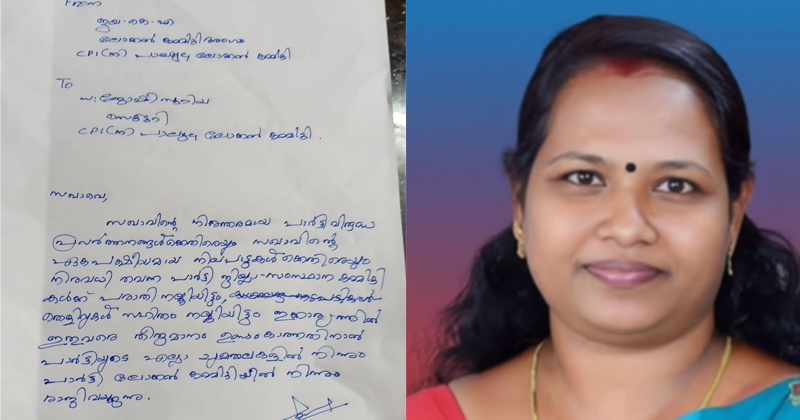 From
ജയ. കെ. എ
ലോക്കൽ കമ്മിറ്റി അംഗം
CPI(M) പാലപ്പുഴ ലോക്കൽ കമ്മിറ്റി
To
സ: ജോഷി സൂര്യ
സെക്രട്ടറി
CPI(M) പാലപ്പുഴ ലോക്കൽ കമ്മിറ്റി.
സഖാവെ,
സഖാവിന്റെ നിരന്തരമായ പാർട്ടിവിരുദ്ധ
പ്രവർത്തനങ്ങൾക്കെതിരെയും സഖാവിന്റെ
ഏകപക്ഷീയമായ നിലപാടുകൾക്കെതിരെയും
നിരവധി തവണ പാർട്ടി ജില്ലാ-സംസ്ഥാന കമ്മിറ്റി
കൾക്ക് പരാതി നല്കിയിട്ടും,
തെളിവുകൾ സഹിതം നല്കിയിട്ടും ഇക്കാര്യത്തിൽ
ഇതുവരെ തീരുമാനം ഉണ്ടാകാത്തതിനാൽ
പാർട്ടിയുടെ എല്ലാ ചുമതലകളിൽ നിന്നും
പാർട്ടി ലോക്കൽ കമ്മിറ്റിയിൽ നിന്നും
രാജിവയ്ക്കുന്നു.